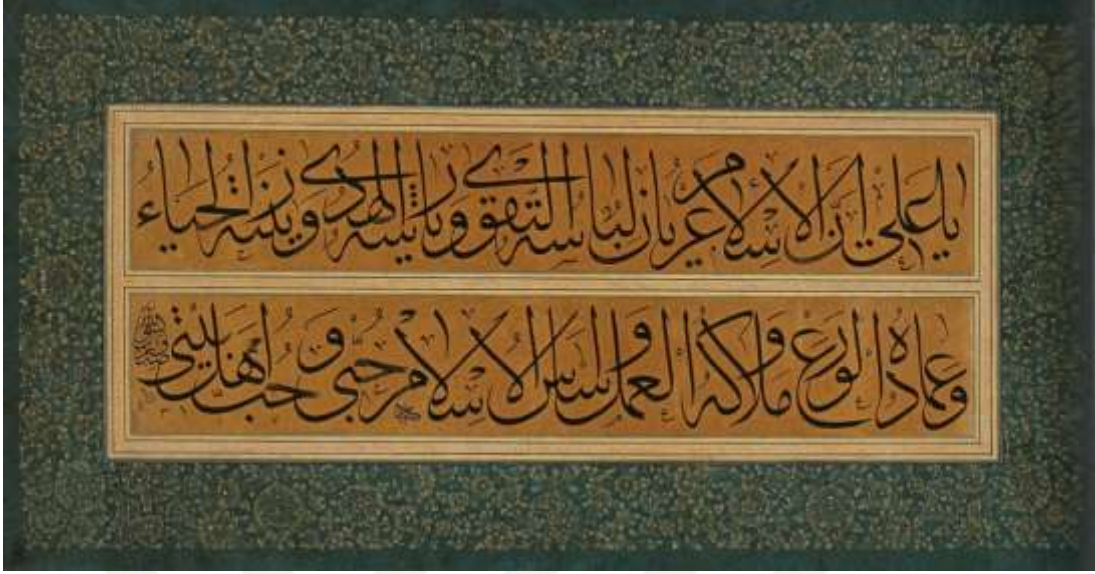 يا علي ان الاسلام عريان لباسه التقوى ورياشه الهدى وزينته الحياء
وعماده الورع وملاكه العمل واساس الاسلام حبي وحب اهل بيتي